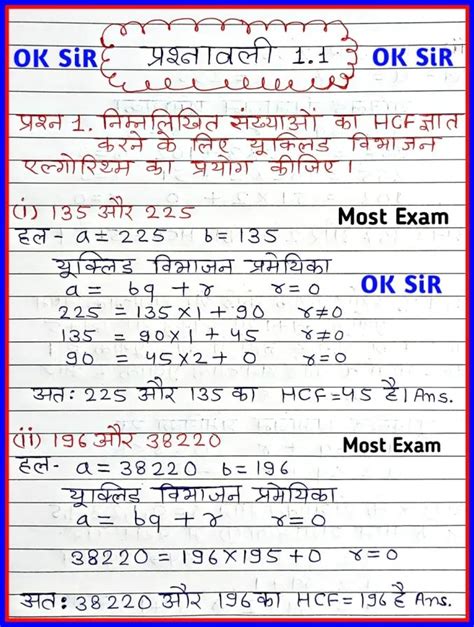 OK SiR प्रश्नावली 1.1 OK SiR
प्रश्न 1. निम्नलिखित संख्याओं का HCF ज्ञात
करने के लिए यूक्लिड विभाजन
एल्गोरिथ्म का प्रयोग कीजिए।
(i) 135 और 225 Most Exam
हल - a = 225 b = 135
यूक्लिड विभाजन प्रमेयिका OK SiR
a = bq + r r = 0
225 = 135 × 1 + 90 r ≠ 0
135 = 90 × 1 + 45 r ≠ 0
90 = 45 × 2 + 0 r = 0
अतः 225 और 135 का HCF = 45 है। Ans.
(ii) 196 और 38220 Most Exam
हल - a = 38220 b = 196
यूक्लिड विभाजन प्रमेयिका
a = bq + r r = 0
38220 = 196 × 195 + 0 r = 0
अतः 38220 और 196 का HCF = 196 है Ans.